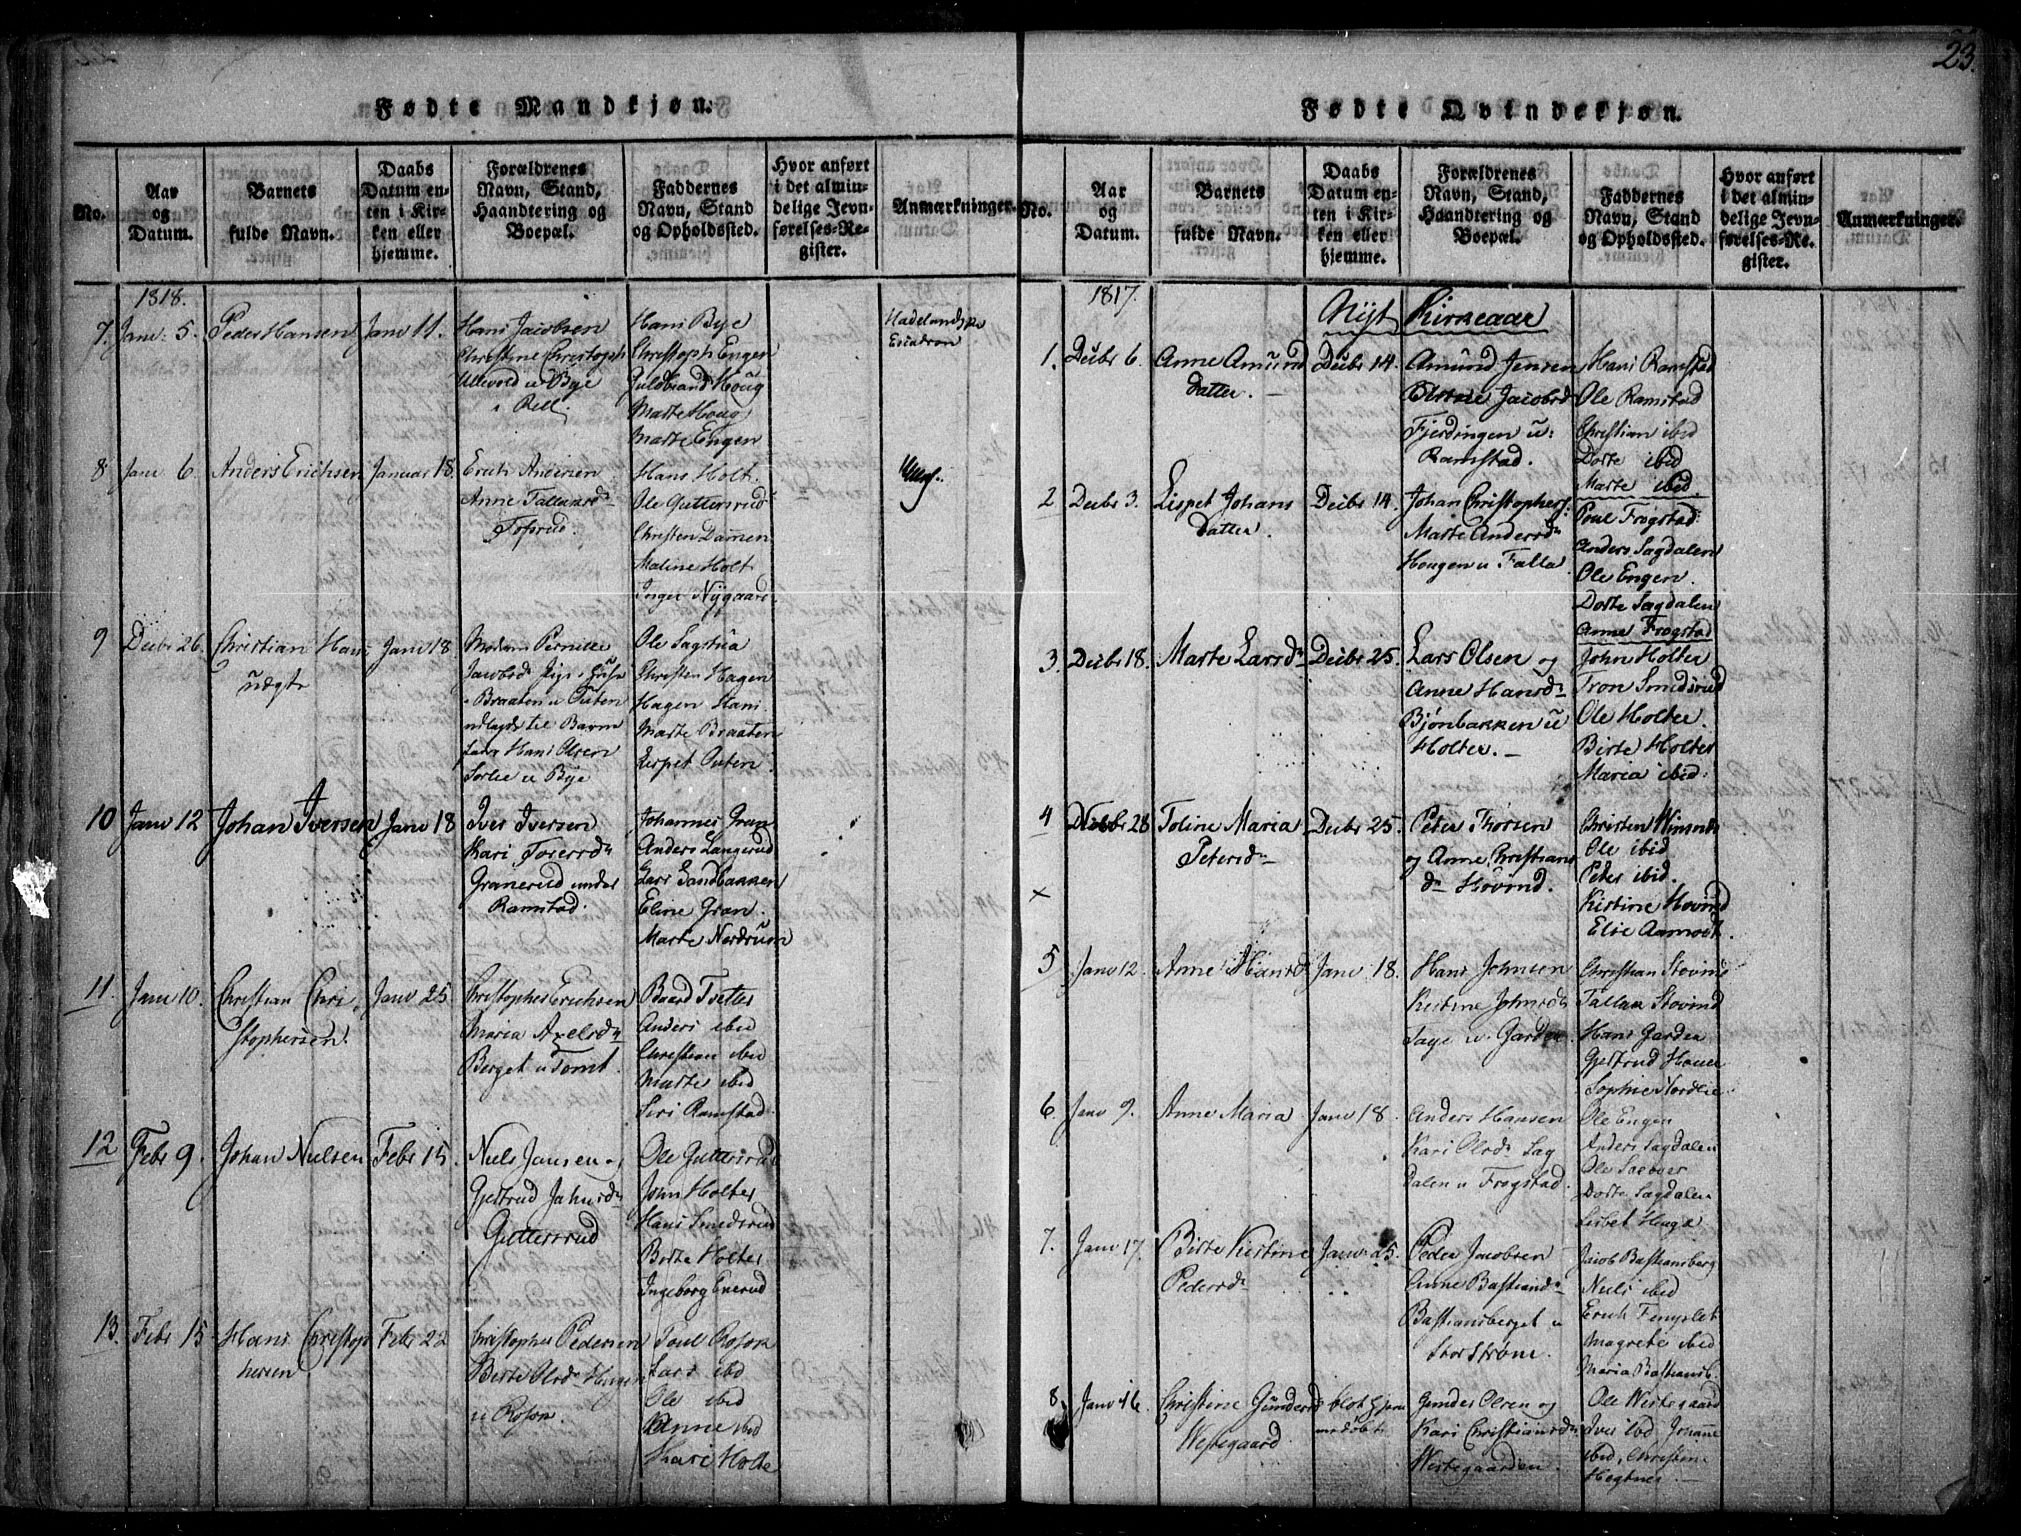 23.
Fødte Mandkjøn.
No.
Aar og Datum.
Barnets fulde Navn.
Daabs Datum enten i Kirken eller hjemme.
Forældrenes Navn, Stand, Haandtering og Boepæl.
Faddernes Navn, Stand og Opholdssted.
Hvor anført i det almindelige Jevnførelses-Register.
Anmærkninger.
1818.
7. Janu: 5. Peder Hansen Janu 11.
Hans Jacobsen
Christine Christoph
Ullevold u Bye
Hans Bye
Christoph Engen
Guldbrand Houg
Marte Houg
Marte Engen
Hadelandske
8 Janu 6. Anders Erichsen Januar 18.
Erich Andersen
Anne Tallaksd
Tosrud.
Hans Holt.
Ole Guttersrud
Christen Dammen
Maline Holt
Inger Nygaard
9 Decbr 26. Christian Hans Janu 18
uægte
Madam Pernille
Jacobsd Pige i Huse
Braaten u Outen
udlagde til Barn
Hans Olsen
Sorlie u Bye
Ole Sagstua
Christen Hagen
Hagen Hans
Marte Braaten
Lispet Outen
10 Janu 12 Johan Iversen Janu 18
Iver Iversen
Kari Torersd
Granerud under
Ramstad.
Johannes Gran
Anders Langerud
Lars Sandbakken
Eline Gran.
Marte Nordrum
11. Janu 10. Christian Chri
stophersen Janu 25
Christopher Erichsen
Maria Axelsd
Berget u Tomt.
Baard Tveter
Anders ibid
Christian ibid
Marte ibid
Siri Ramstad
12 Febr 9. Johan Nielsen Febr 15.
Niels Jansen
Gjertrud Jahnsd
Guttersrud
Ole Guttersrud
John Holter
Hans Smedsrud
Berte Holter
Ingeborg Enerud
13. Febr 15 Hans Christop
hersen Febr 22
Christopher Pedersen
Berte Olsd Haugen
u Roson.
Poul Roson
Lars ibid
Ole ibid
Anne ibid
Kari Holte
Fødte Qvindekjøn.
No.
Aar og Datum.
Barnets fulde Navn.
Daabs Datum enten i Kirken eller hjemme.
Forældrenes Navn, Stand, Haandtering og Boepæl.
Faddernes Navn, Stand og Opholdssted.
Hvor anført i det almindelige Jevnførelses-Register.
Anmærkninger.
1817.
Nyt Kirkeaar
1. Decbr 6. Anne Amund
datter. Decbr 14.
Amund Jensen
Jacobsd
Fjerdingen u:
Ramstad.
Hans Ramstad
Ole Ramstad
Christian ibid
Dorte ibid
Marte ibid
2 Decbr 3. Lispet Johans
datter Decbr 14.
Johan Christophers:
Marte Andersd
Hougen u Falla
Poul Frogstad
Anders Sagdalen
Ole Engen.
Dorte Sagdalen
Anne Frogstad
3. Decbr 18. Marte Larsd Decbr 25.
Lars Olsen og
Anne Hansd
Bjønbakken u
Holter. -
John Holter
Tron Smedsrud
Ole Holter.
Birte Holter
Maria ibid:
4 Novbr 28 Toline Maria
Petersd Decbr 25.
Peter Thorsen
og Anne Christians
d Hovind.
Christen
Ole ibid
Peter ibid.
Kirstine Hovind
Elie Aamodt.
5 Janu 12. Anne Hansd Janu 18.
Hans Johnsen
Kirstine Johnsd
Taje u Garder
Christian Stovind
Tallak Stovind
Hans Garder
Gjertrud Hauer
Sophie Nordlie
6. Janu 9. Anne Maria Janu 18.
Anders Hansen
Kari Olsd Sag
Dalen u Frogstad.
Ole Engen
Anders Sagdalen
Ole
Dorte Sagdalen
Lisbet Hauga
7. Janu 17. Birte Kirstine
Pedersd Janu 25.
Peder Jacobsen
Anne Bastiansd
Bastiansberget u
Storstrøm.
Jacob Bastiansberg
Niels ibid
Erich Fenplet
Magrete ibid
Maria Bastiansb.
8. Janu 16. Christine Gundersd
Westegaard blot hjem
medøbt
Gunder Olsen og
Kari Christiansd
Westegaarden.
Ole Westegaard
Iver ibid Johanne
ibid, Christen
Hegtnes. -